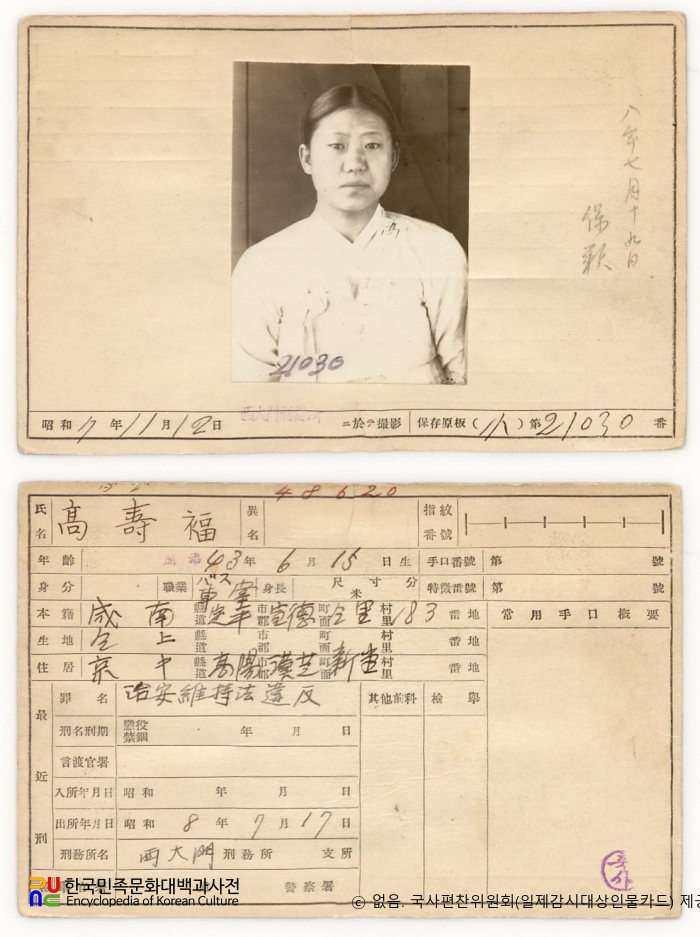 八年七月十九日
保釈
高
21030
昭和 7 年 11 月 12 日 ニ於テ撮影 保存原板(小)第 21030 番
48620
氏名 高壽福 異名 指紋番號
年齢 明治 43 年 6 月 15 日生 手口番號 第 號
身分 職業 バス車掌 身長 尺寸分 米 特徴番號 第 號
本籍 咸南 縣道 定平 市郡 宣德 町面 仝里 村里 183 番地 常用手口概要
生地 仝上 縣道 市郡 町面 村里 番地
住居 京 縣道 高陽 市郡 漢芝 町面 新堂 村里 番地
最近刑
罪名 治安維持法違反 其他前科 檢擧
刑名刑期 懲役 禁錮 年 月 日
言渡官署
入所年月日 昭和 年 月 日
出所年月日 昭和 8 年 7 月 17 日
刑務所名 西大門 刑務所 支所
警察署
한국민족문화대백과사전
Encyclopedia of Korean Culture
© 없음. 국사편찬위원회(일제감시대상인물카드) 제공